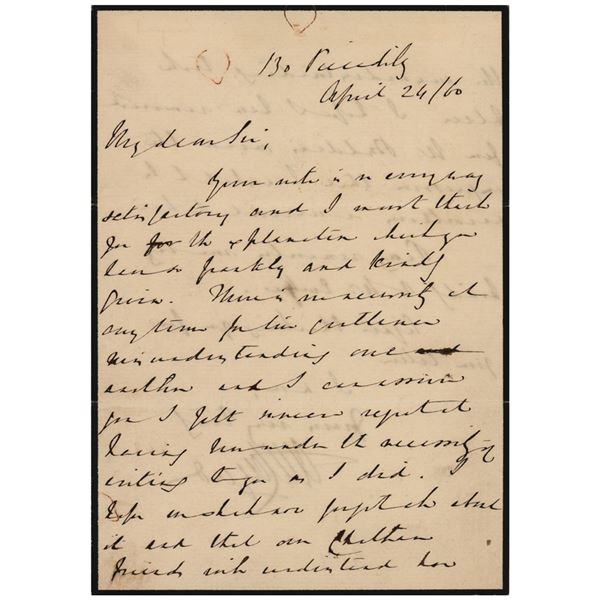 130 Piccadilly
April 24/60
My dear Sir,
Your note is in every way
satisfactory and I must thank
you for the explanation which you
have so frankly and kindly
given. There is no necessity at
any time for two gentlemen
misunderstanding one
another and I can assure
you I felt sincere regret at
being under the necessity of
writing to you as I did. I
hope we shall now forget all about
it and that our Chatham
friends will understand how